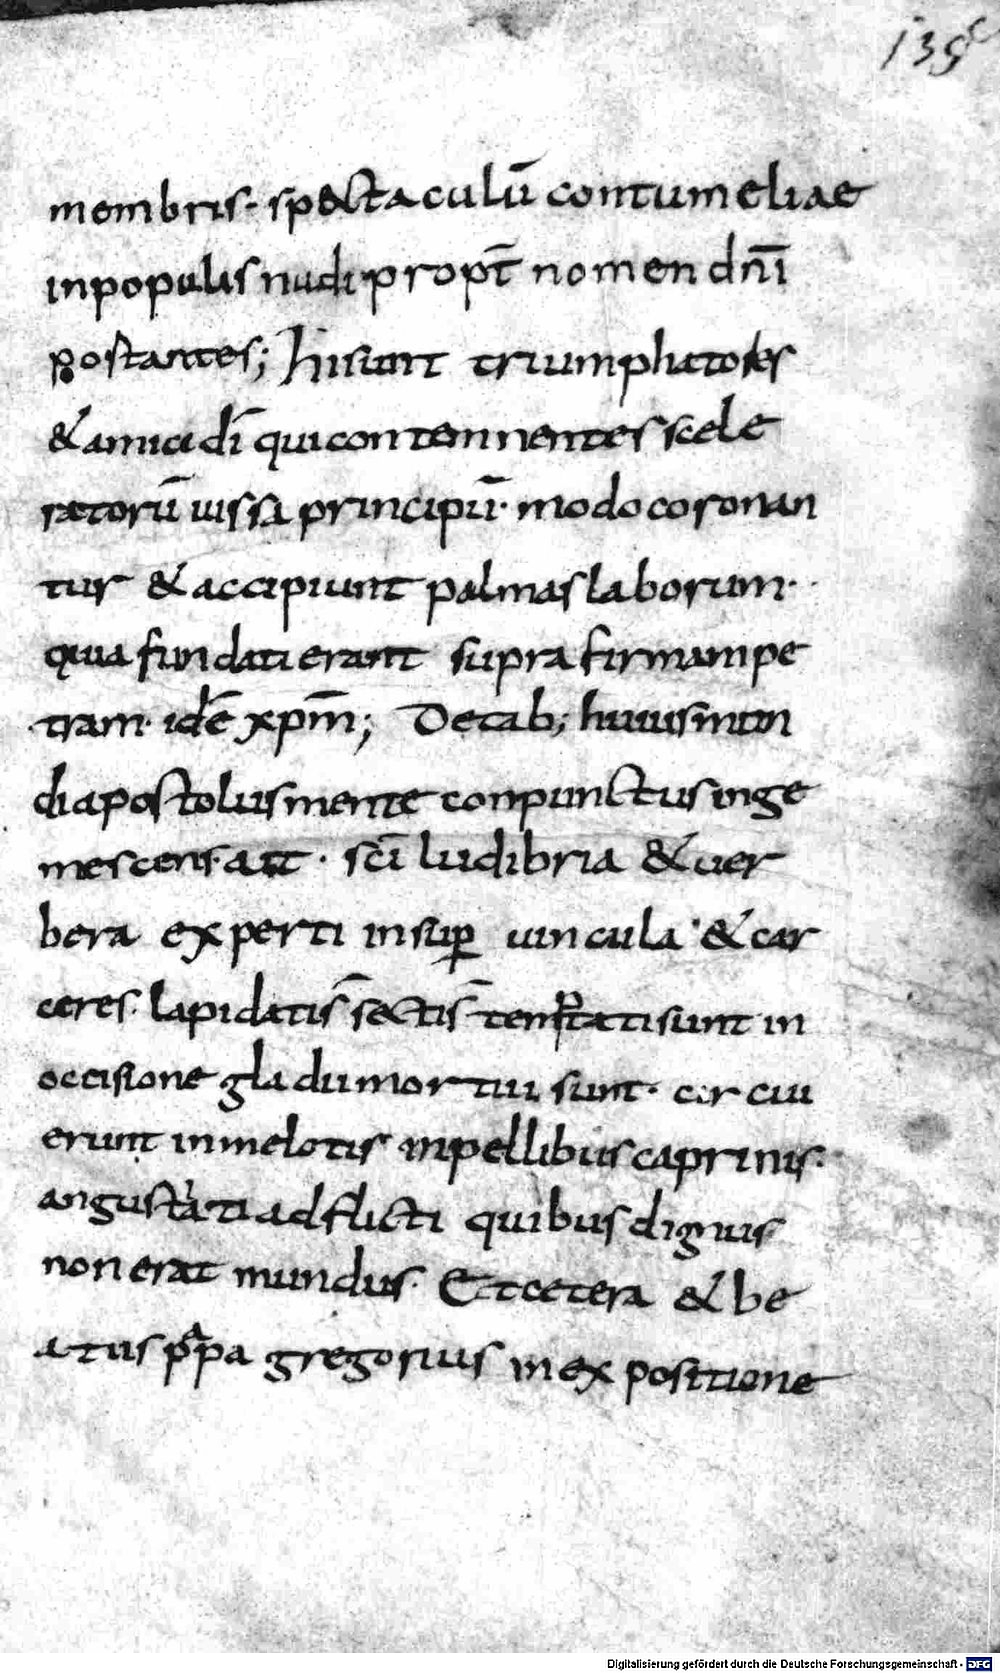 139c
membris· sp&ctaculū contumeliae
inpopulis nudi propt̄ nomen dn̄i
postantes; hisunt triumphatores
&amici dī quicontemnentes scele
ratorū iussa principū· modo coronan
tur &accipiunt palmas laborum·
quia fundati erant supra firmam pe
tram· idē xpm̄; Detab; huiuscemodi
di apostolus mente conpunctus inge
mescens· ait · sc̄i ludibria &uer
bera experti insuꝑ uincula &car
ceres· lapidatis̄ sectis̄ temptati sunt in
occisione gladii mortui sunt· circui
erunt inmelotis inpellibus caprinis·
angustiati adflicti quibus dignus
non erat mundus· Etcetera &be
atus papa gregorius inexpositione
Digitalisierung gefördert durch die Deutsche Forschungsgemeinschaft - DFG